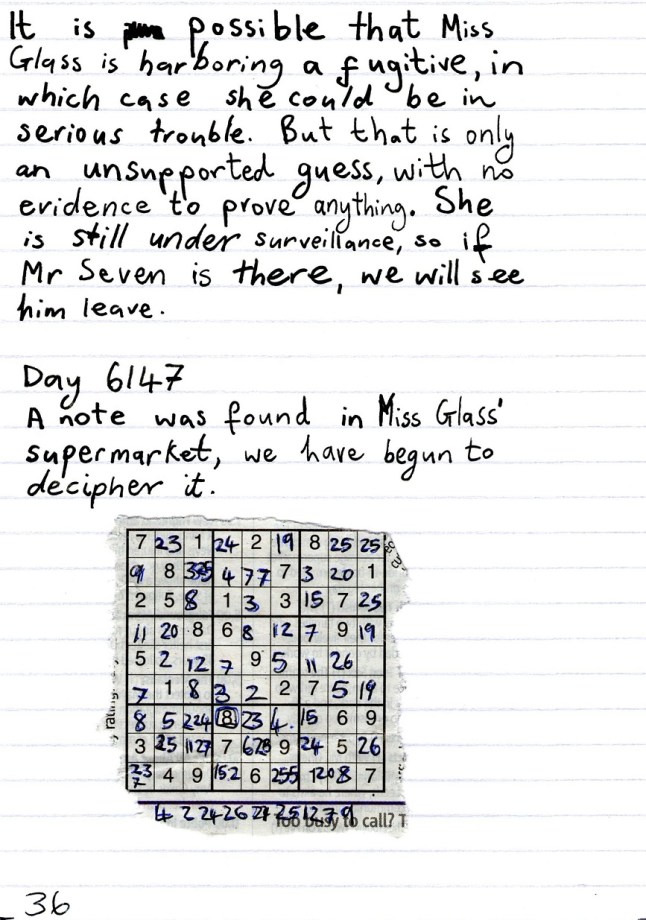 It is possible that Miss
Glass is harboring a fugitive, in
which case she could be in
serious trouble. But that is only
an unsupported guess, with no
evidence to prove anything. She
is still under surveillance, so if
Mr Seven is there, we will see
him leave.
Day 6147
A note was found in Miss Glass'
supermarket, we have begun to
decipher it.
7 23 1 24 2 19 8 25 25
8 4 77 7 3 20 1
2 5 8 1 3 3 15 7 25
11 20 8 6 8 12 7 9 19
5 2 12 7 9 5 11 26
7 1 8 3 2 2 7 5 19
8 5 224 8 23 4. 15 6 9
3 25 1127 7 9 24 5 26
23 7 4 9 152 6 255 1208 7
4 2 24 26 25 12 7 9
Too busy to call? T
36